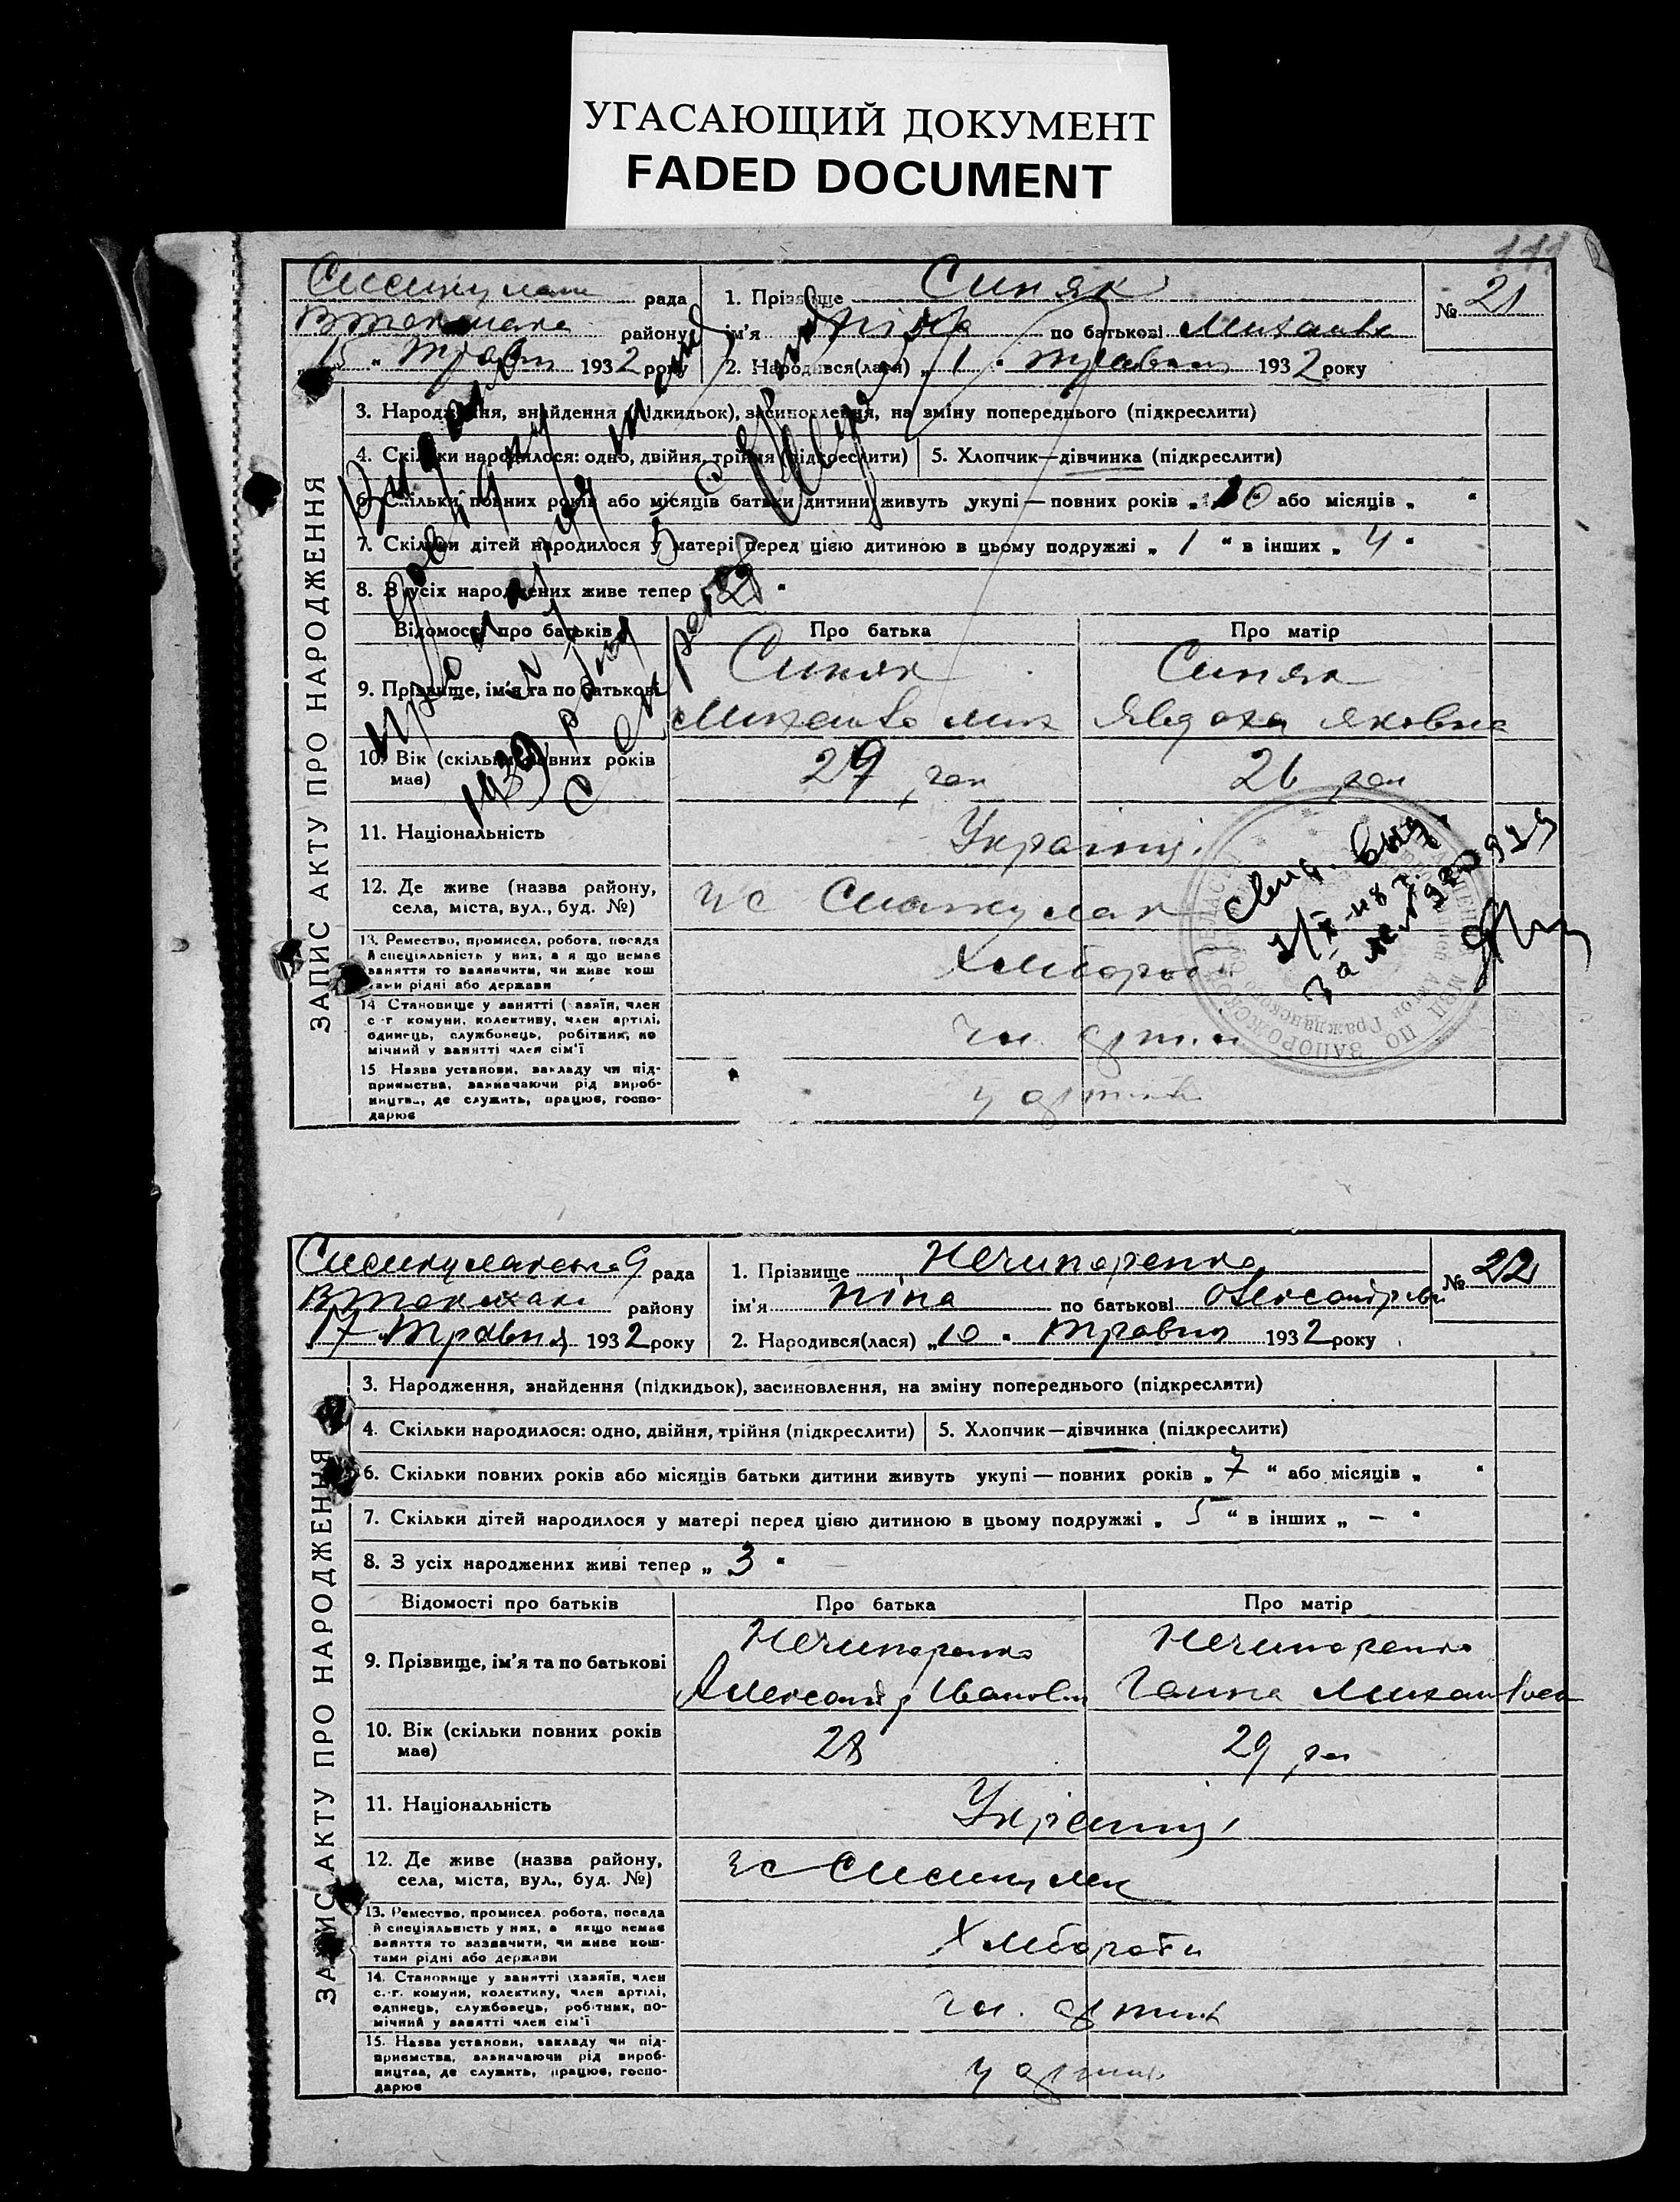 УГАСАЮЩИЙ ДОКУМЕНТ
FADED DOCUMENT
111
рада
району
15 " Травн 1932 року
1. Прізвище Синяк
ім'я по батькові
2. Народився(лася) „ 1 " травня 1932 року
№ 21
ЗАПИС АКТУ ПРО НАРОДЖЕННЯ
3. Народження, знайдення (підкидьок), засиновлення, на зміну попереднього (підкреслити)
4. Скільки народилося: одно, двійня, трійня (підкреслити)
5. Хлопчик—дівчинка (підкреслити)
6. Скільки повних років або місяців батьки дитини живуть укупі — повних років „ 10 або місяців „ "
7. Скільки дітей народилося у матері перед цією дитиною в цьому подружжі „ 1 " в інших „ 4 "
8. З усіх народжених живе тепер „ "
Відомості про батьків
Про батька
Про матір
9. Прізвище, ім'я та по батькові
Синяк
Синяк
Явдоха Яковна
10. Вік (скільки повних років
має)
29
26
11. Національність
Україн
12. Де живе (назва району,
села, міста, вул., буд. №)
13. Ремество, промисел, робота, посада
й спеціяльність у них, а я що немає
заняття то зазначити, чи живе кош
тами рідні або держави
Хлібороб
14 Становище у занятті (хазяїн, член
с.-г комуни, колективу, член артілі,
одинець, службовець, робітник, по
мічний у занятті член сім'ї
чл.
15 Назва установи, закладу чи під-
приємства, зазначаючи рід вироб-
ництва, де служить, працює, госпо-
дарює
у
Видано
1939 р
рада
району
17 Травня 1932 року
1. Прізвище Нечипоренко
ім'я Ніна по батькові
2. Народився(лася) „ 10 " травня 1932 року
№ 22
ЗАПИС АКТУ ПРО НАРОДЖЕННЯ
3. Народження, знайдення (підкидьок), засиновлення, на зміну попереднього (підкреслити)
4. Скільки народилося: одно, двійня, трійня (підкреслити)
5. Хлопчик—дівчинка (підкреслити)
6. Скільки повних років або місяців батьки дитини живуть укупі — повних років „ 7 " або місяців „ "
7. Скільки дітей народилося у матері перед цією дитиною в цьому подружжі „ 5 " в інших „ – "
8. З усіх народжених живі тепер „ 3 "
Відомості про батьків
Про батька
Про матір
9. Прізвище, ім'я та по батькові
Нечипоренко
Нечипоренко
Ганна
10. Вік (скільки повних років
має)
28
29
11. Національність
Українці
12. Де живе (назва району,
села, міста, вул., буд. №)
13. Ремество, промисел, робота, посада
й спеціяльність у них, а якщо немає
заняття то зазначити, чи живе кош-
тами рідні або держави
14. Становище у занятті (хазяїн, член
с.-г. комуни, колективу, член артілі,
одинець, службовець, робітник, по-
мічний у занятті член сім'ї
чл.
15. Назва установи, закладу чи під-
приємства, зазначаючи рід вироб-
ництва, де служить, працює, госпо-
дарює
у